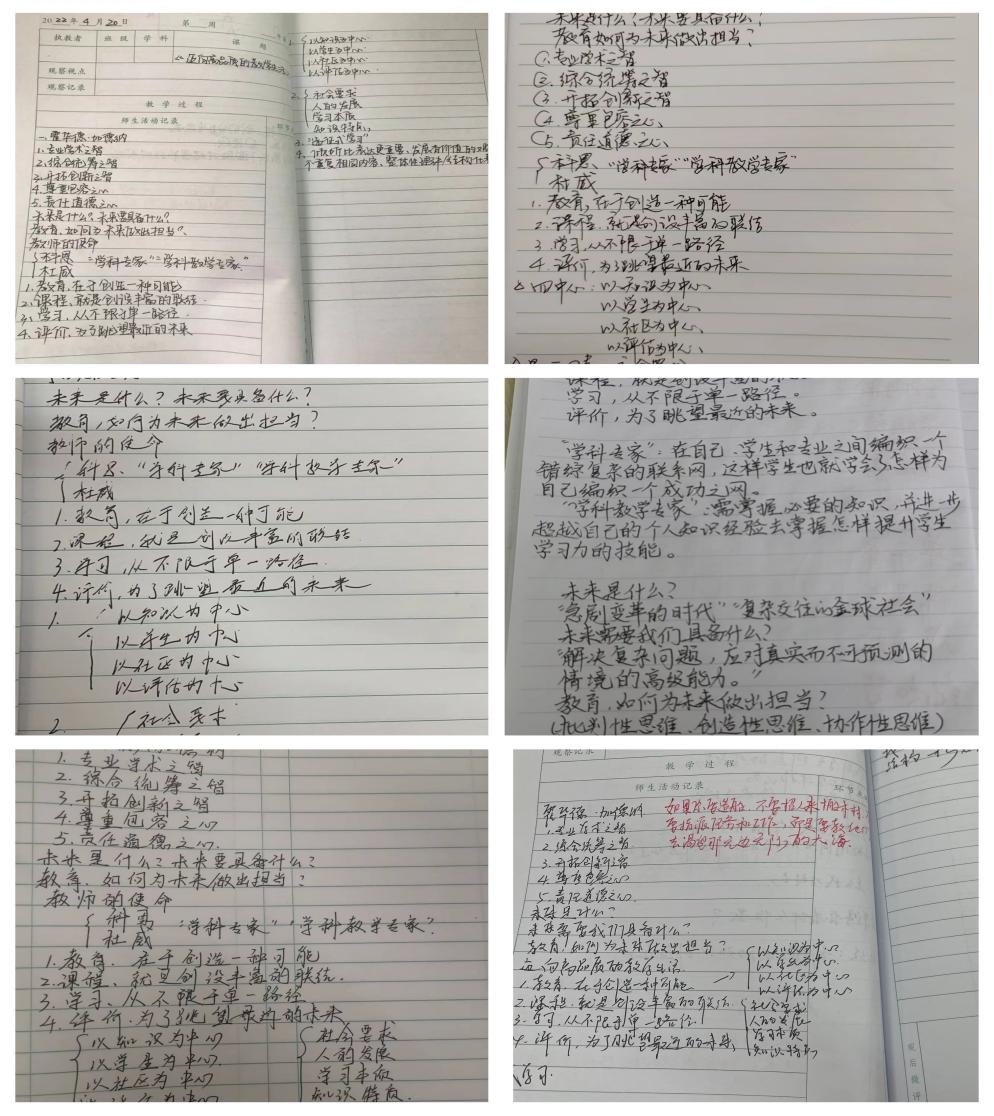 2022年4月20日 第 周
执教者 班级 学科 课题
《迈向高品质的教学生活》
观察视点
观察记录
教学过程
师生活动记录
一、霍华德·加德纳
1.专业学术之智
2.综合统筹之智
3.开拓创新之智
4.尊重包容之心
5.责任道德之心
未来是什么?未来要具备什么?
教育,如何为未来做出担当?
教师的使命
科恩 “学科专家”“学科教学专家”
杜威
1.教育,在于创造一种可能
2.课程,就是创设丰富的联结.
3.学习,从不限于单一路径.
4.评价,为了眺望最近的未来
1.
以知识为中心
以学生为中心
以社区为中心
以评估为中心
2.
社会要求
人的发展
学习本质
知识特点
未来是什么?未来要具备什么?
教育如何为未来做出担当?
①.专业学术之智
②.综合统筹之智
③.开拓创新之智
④.尊重包容之心、
⑤.责任道德之心、
科恩、“学科专家”“学科教学专家”
杜威
1.教育,在于创造一种可能
2.课程.就是创设丰富的联结
3.学习,从不限于单一路径
4.评价,为了眺望最近的未来
四中心:以知识为中心、
以学生为中心
以社区为中心、
以评估为中心、
未来是什么?未来要具备什么?
教育,如何为未来做出担当?
教师的使命
科恩、“学科专家”“学科教学专家”
杜威
1.教育,在于创造一种可能
2.课程,就是创设丰富的联结
3.学习,从不限于单一路径.
4.评价,为了眺望最近的未来
1.
以知识为中心
以学生为中心
以社区为中心
以评估为中心
2.
社会要求
课程,就是创设丰富的
学习,从不限于单一路径。
评价,为了眺望最近的未来。
“学科专家”:在自己、学生和专业之间编织一个
错综复杂的联系网,这样学生也就学会了怎样为
自己编织一个成功之网。
“学科教学专家”:需掌握必要的知识,并进一步
超越自己的个人知识经验去掌握怎样提升学生
学习力的技能。
未来是什么?
“急剧变革的时代”“复杂交往的全球社会”
未来需要我们具备什么?
“解决复杂问题,应对真实而不可预测的
情境的高级能力。”
教育,如何为未来做出担当?
(批判性思维、创造性思维、协作性思维)
1.专业学术之智
2.综合统筹之智
3.开拓创新之智
4.尊重包容之心
5.责任道德之心.
未来是什么?未来要具备什么?
教育.如何为未来做出担当?
教师的使命
科恩 “学科专家”“学科教学专家”
杜威
1.教育.在于创造一种可能
2.课程.就是创设丰富的联结.
3.学习、从不限于单一路径
4.评价.为了眺望最近的未来
以知识为中心
以学生为中心.
以社区为中心
社会要求
人的发展
学习本质
知识特点.
观察记录
教学过程
师生活动记录 环节
霍华德·加德纳
1.专业学术之智
2.综合统筹之智
3.开拓创新之智
4.尊重包容之心
5.责任道德之心.
未来是什么?
未来需要我们具备什么?
教育,如何为未来做出担当?
迈向高品质的教学生活
1.教育.在于创造一种可能
2.课程.就是创设丰富的联结.
3.学习.从不限于单一路径.
4.评价,为了眺望最近的未来
以知识为中心
以学生为中心
以社区为中心
以评估为中心
社会要求
人的发展
学习本质
知识特点
学习.
观后微评